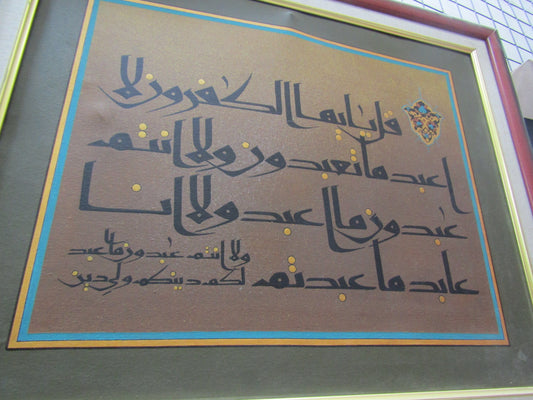 قل يأيها الكفرون لا
اعبد ما تعبدون ولا انتم
عبدون ما اعبد ولا انا
عابد ما عبدتم
ولا انتم عبدون ما اعبد
لكم دينكم ولي دين